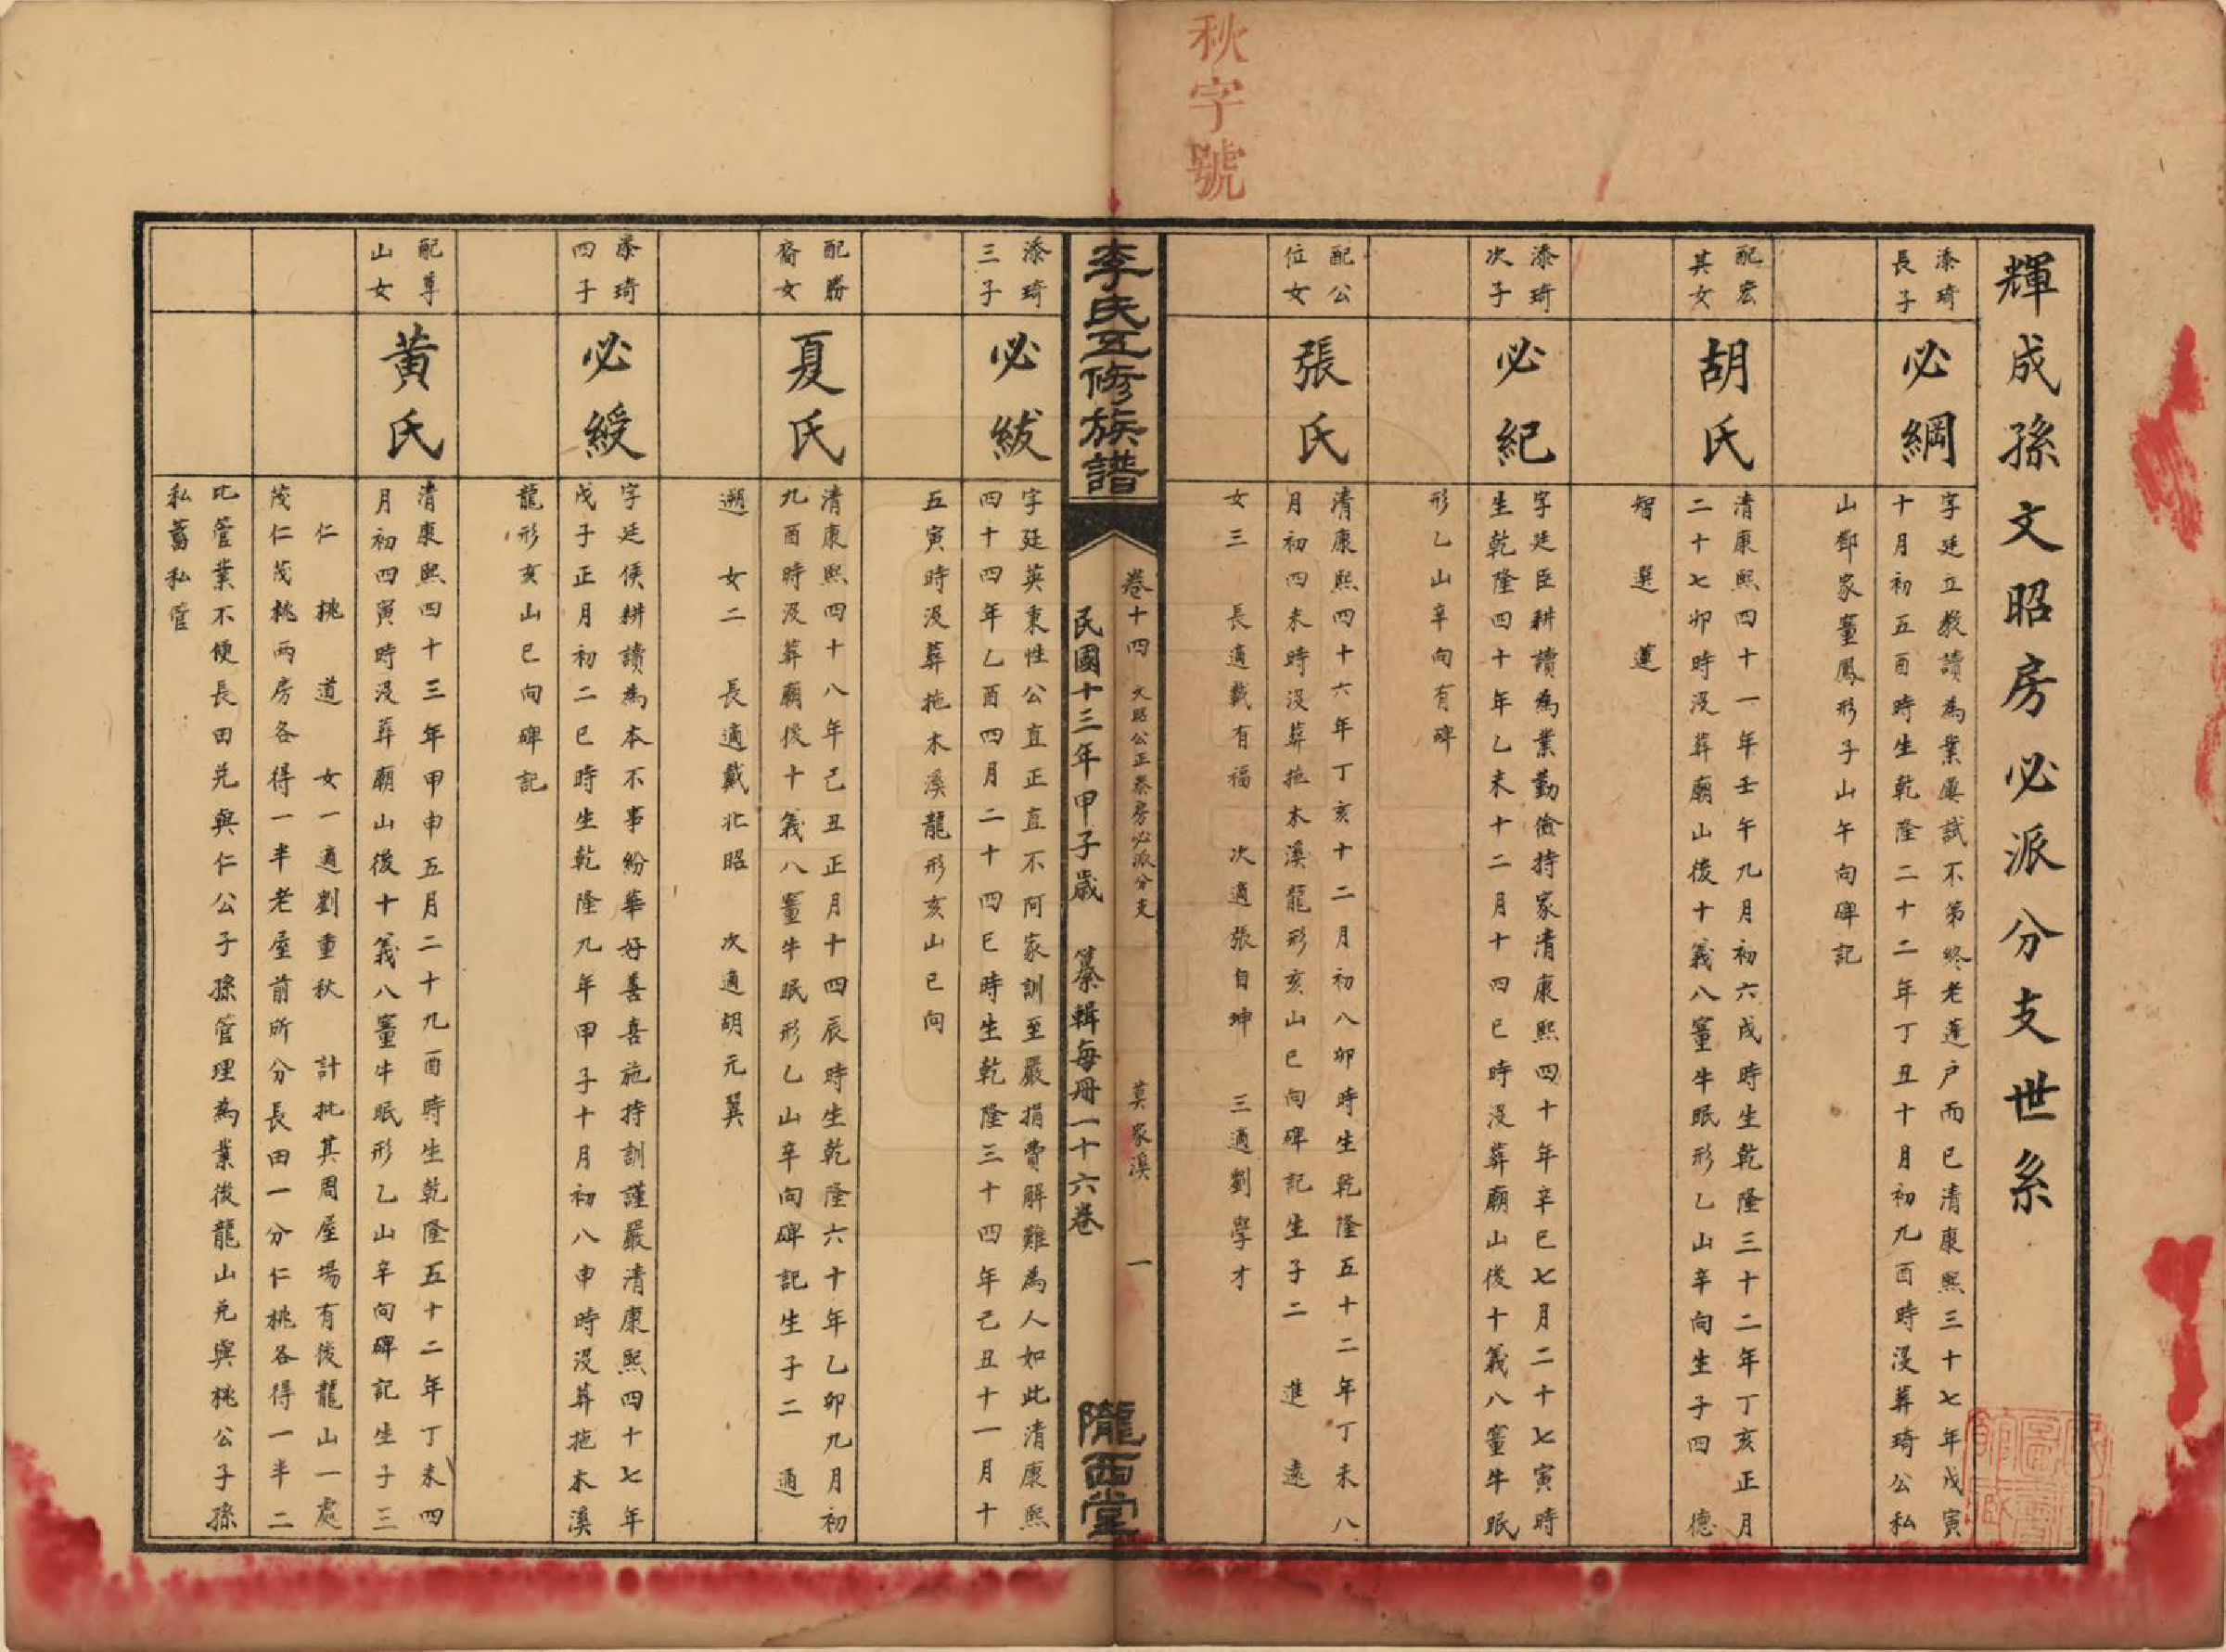 秋字號
輝成孫文昭房必派分支世系
添琦
長子
必綱
字廷立教讀為業屢試不第終老蓬户而已清康熙三十七年戊寅
十月初五酉時生乾隆二十二年丁丑十月初九酉時沒葬琦公私
山鄧家𡑞鳳形子山午向碑記
配宏
其女
胡氏
清康熙四十一年壬午九月初六戌時生乾隆三十二年丁亥正月
二十七卯時沒葬廟山後十義八𡑞牛眠形乙山辛向生子四　德
智　選　蓮
添琦
次子
必紀
字廷臣耕讀為業勤儉持家清康熙四十年辛巳七月二十七寅時
生乾隆四十年乙未十二月十四巳時沒葬廟山後十義八𡑞牛眠
形乙山辛向有碑
配公
位女
張氏
清康熙四十六年丁亥十二月初八卯時生乾隆五十二年丁未八
月初四未時沒葬拖木溪龍形亥山巳向碑記生子二　進　遠
女三　長適戴有福　次適張自坤　三適劉學才
李氏五修族譜
卷十四　文昭公正泰房必派分支　莫家溪　一
民國十三年甲子歲　纂輯每冊一十六卷
隴西堂
添琦
三子
必紱
字廷英秉性公直正直不阿家訓至嚴捐費解難為人如此清康熙
四十四年乙酉四月二十四巳時生乾隆三十四年己丑十一月十
五寅時沒葬拖木溪龍形亥山巳向
配勝
裔女
夏氏
清康熙四十八年己丑正月十四辰時生乾隆六十年乙卯九月初
九酉時沒葬廟後十義八𡑞牛眠形乙山辛向碑記生子二　通
遡　女二　長適戴北昭　次適胡元翼
添琦
四子
必綬
字廷侯耕讀為本不事紛華好善喜施持訓謹嚴清康熙四十七年
戊子正月初二巳時生乾隆九年甲子十月初八申時沒葬拖木溪
龍形亥山巳向碑記
配尊
山女
黃氏
清康熙四十三年甲申五月二十九酉時生乾隆五十二年丁未四
月初四寅時沒葬廟山後十義八𡑞牛眠形乙山辛向碑記生子三
仁　桃　道　女一適劉重秋　計批其周屋場有後龍山一處
茂仁茂桃兩房各得一半老屋前所分長田一分仁桃各得一半二
比管業不便長田兑與仁公子孫管理為業後龍山兑與桃公子孫
私蓄私管